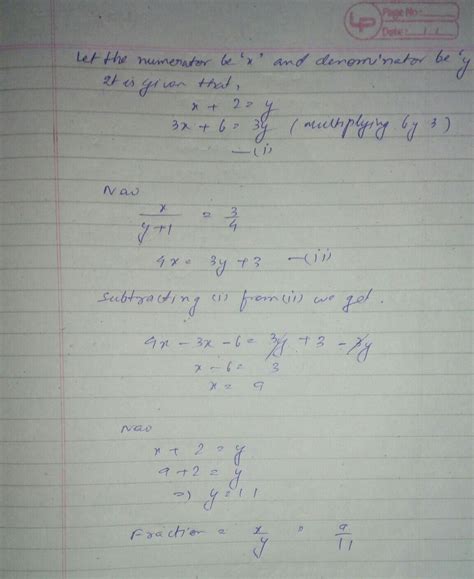 LP Page No:
Date: / /
Let the numerator be 'x' and denominator be 'y
It is given that,
x + 2 = y
3x + 6 = 3y (multiplying by 3)
—(i)
Now
x/y+1 = 3/4
4x = 3y + 3 —(ii)
Subtracting (i) from (ii) we get.
4x - 3x - 6 = 3y + 3 - 3y
x - 6 = 3
x = 9
Now
x + 2 = y
9 + 2 = y
=> y = 11
Fraction = x/y = 9/11